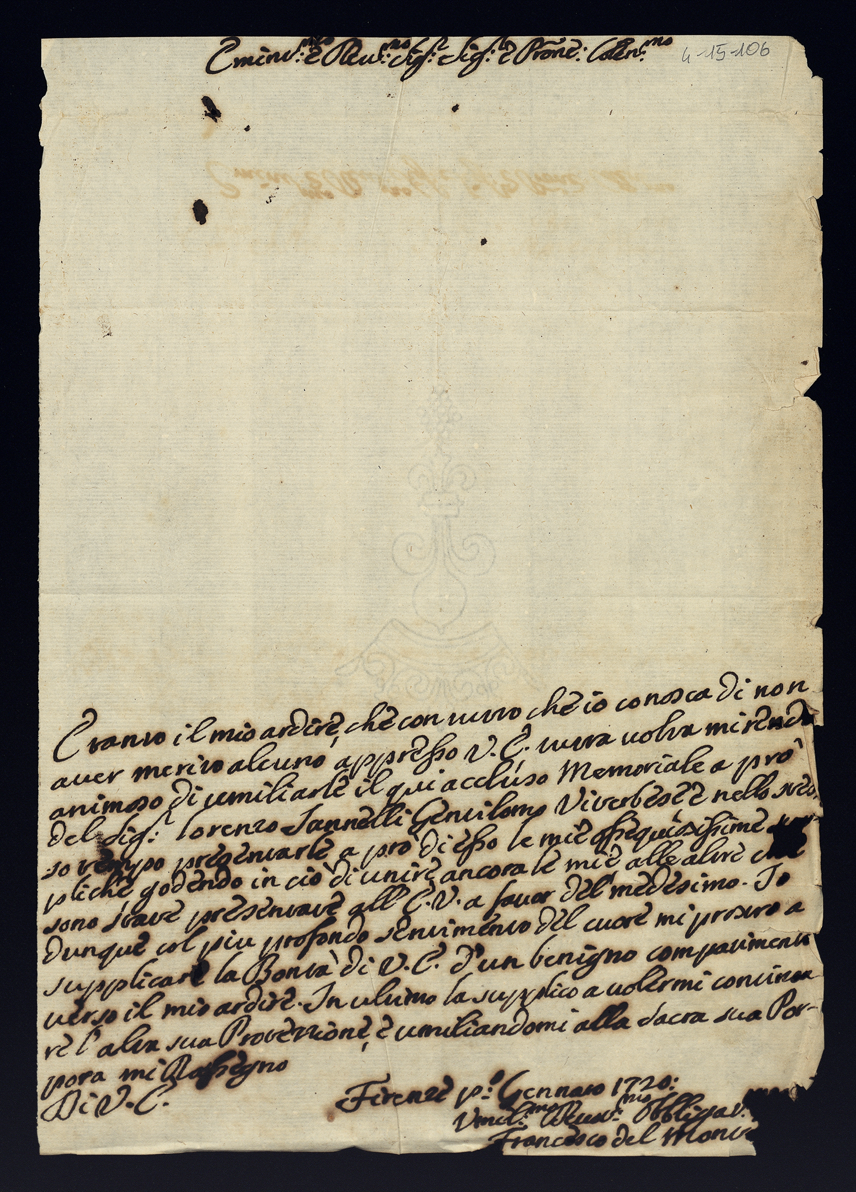 Emin:mo e Rev:mo Sig:r Sig:r e Prone: Colen:mo
4-15-106
È tanto il mio ardire, che con tutto che io conosca di non
aver merito alcuno appresso V. E. tutta volta mi rende
animoso di umiliarle il qui accluso Memoriale a prò
del Sig:r Lorenzo Iannelli Gentilomo Viterbese e nello stes-
so tempo presentarle a prò di esso le mie ossequiosissime sup
pliche godendo in ciò di unire ancora le mie alle altre che
sono state presentate all E. V. a favor del medesimo. Io
dunque col piu profondo sentimento del cuore mi prostro a
supplicare la Bontà di V. E. d'un benigno compatimento
verso il mio ardire. In ultimo la supplico a volermi continua
re l'alta sua Protezzione, e umiliandomi alla Sacra sua Por-
pora mi Rassegno
Di V. E.
Firenze p:o Gennaro 1720:
Vmil:mo Devot:mo Obbligat:
Francesco del Monte